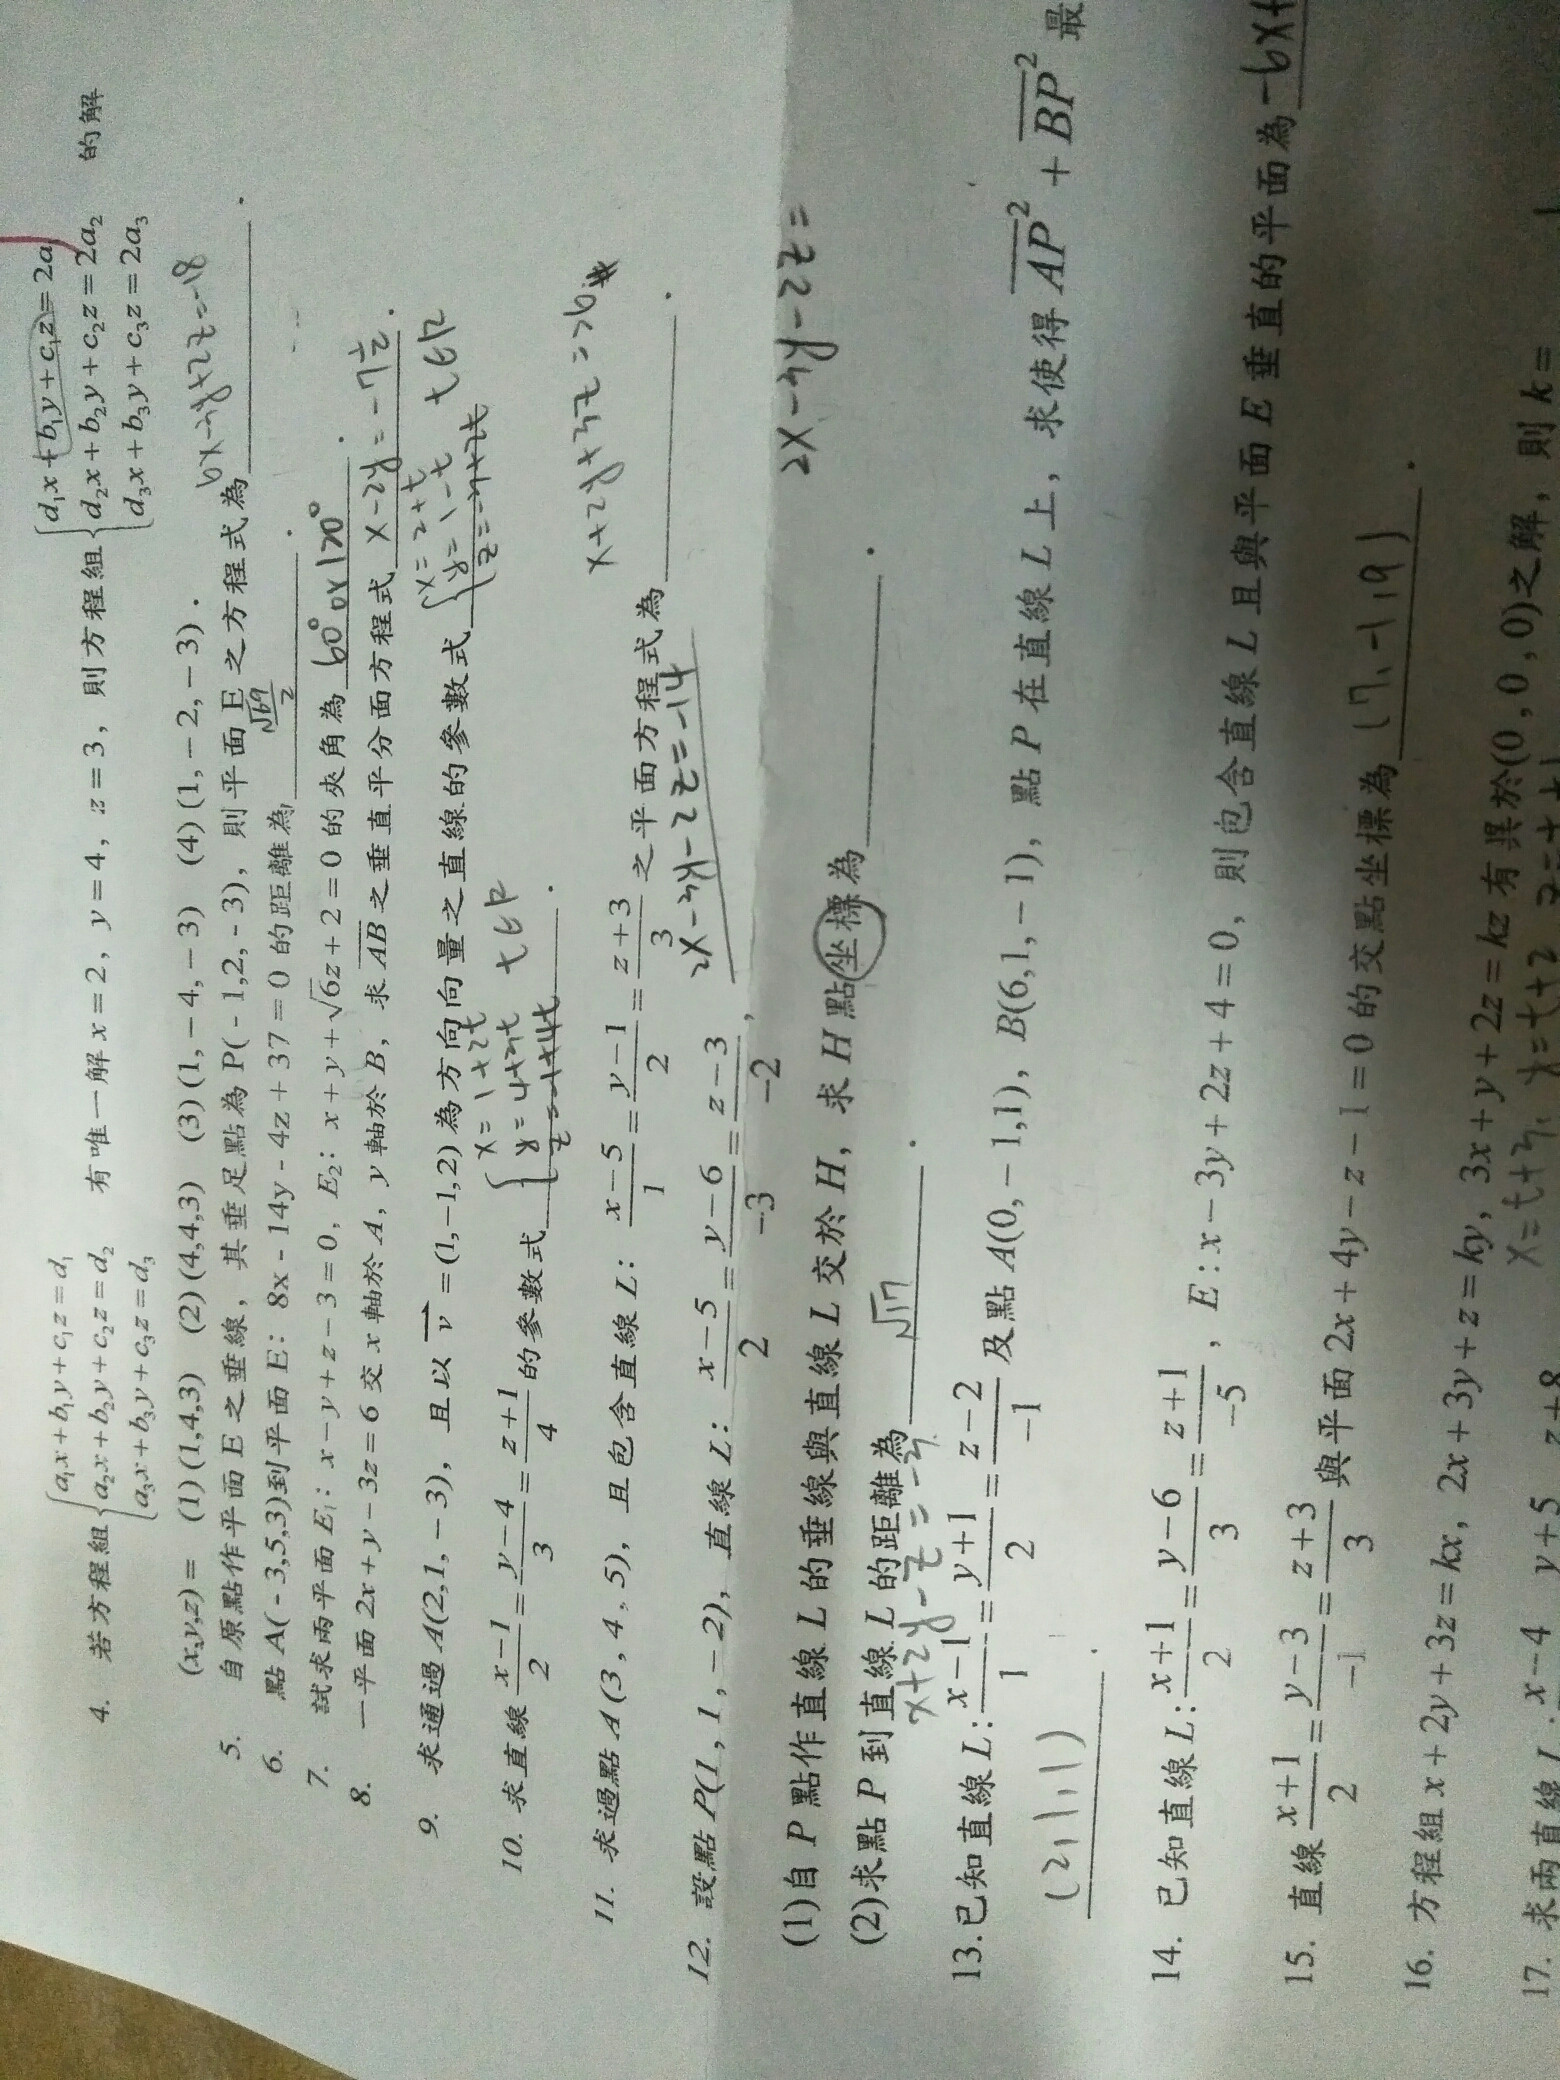 4. 若方程組 { a₁x + b₁y + c₁z = d₁ 有唯一解 x = 2, y = 4, z = 3, 則方程組 { d₁x + b₁y + c₁z = 2a₁ 的解
a₂x + b₂y + c₂z = d₂ d₂x + b₂y + c₂z = 2a₂
a₃x + b₃y + c₃z = d₃ d₃x + b₃y + c₃z = 2a₃
(x,y,z) = (1) (1,4,3) (2) (4,4,3) (3) (1, −4, −3) (4) (1, −2, −3).
5. 自原點作平面 E 之垂線, 其垂足點為 P( - 1,2, - 3), 則平面 E 之方程式為____.
6. 點 A( - 3,5,3)到平面 E: 8x - 14y - 4z + 37 = 0 的距離為 √69/2 .
7. 試求兩平面 E₁: x − y + z − 3 = 0, E₂: x + y + √6z + 2 = 0 的夾角為 60° or 120° .
8. 一平面 2x + y − 3z = 6 交 x 軸於 A, y 軸於 B, 求 AB 之垂直平分面方程式 x − 2y = −7½ .
9. 求通過 A(2,1, − 3), 且以 v = (1,−1,2) 為方向向量之直線的參數式 { x = 2+t
y = 1−t t∈R
z = −3+2t
10. 求直線 (x−1)/2 = (y−4)/3 = (z+1)/4 的參數式 { x = 1+2t
y = 4+3t t∈R
z = −1+4t .
x+2y+3z = 26
11. 求過點 A (3 , 4 , 5), 且包含直線 L: (x−5)/1 = (y−1)/2 = (z+3)/3 之平面方程式為____.
2x−3y−2z = −14
12. 設點 P(1 , 1 , −2), 直線 L: (x−5)/2 = (y−6)/−3 = (z−3)/−2 ,
2x−3y−2z =
(1)自 P 點作直線 L 的垂線與直線 L 交於 H, 求 H 點坐標為____.
(2)求點 P 到直線 L 的距離為 √17 .
x+2y−z = −3
13.已知直線 L: (x−1)/1 = (y+1)/2 = (z−2)/−1 及點 A(0,−1,1), B(6,1,−1), 點 P 在直線 L 上, 求使得 AP² + BP² 最
(2,1,1) .
14. 已知直線 L: (x+1)/2 = (y−6)/3 = (z+1)/−5 , E : x − 3y + 2z + 4 = 0, 則包含直線 L 且與平面 E 垂直的平面為 −6x+
15. 直線 (x+1)/2 = (y−3)/−1 = (z+3)/3 與平面 2x + 4y − z − 1 = 0 的交點坐標為 (7,−1,9) .
16. 方程組 x + 2y + 3z = kx, 2x + 3y + z = ky, 3x + y + 2z = kz 有異於(0 , 0 , 0)之解, 則 k =
17. 求兩直線 L : x − 4 y + 5 z + 8